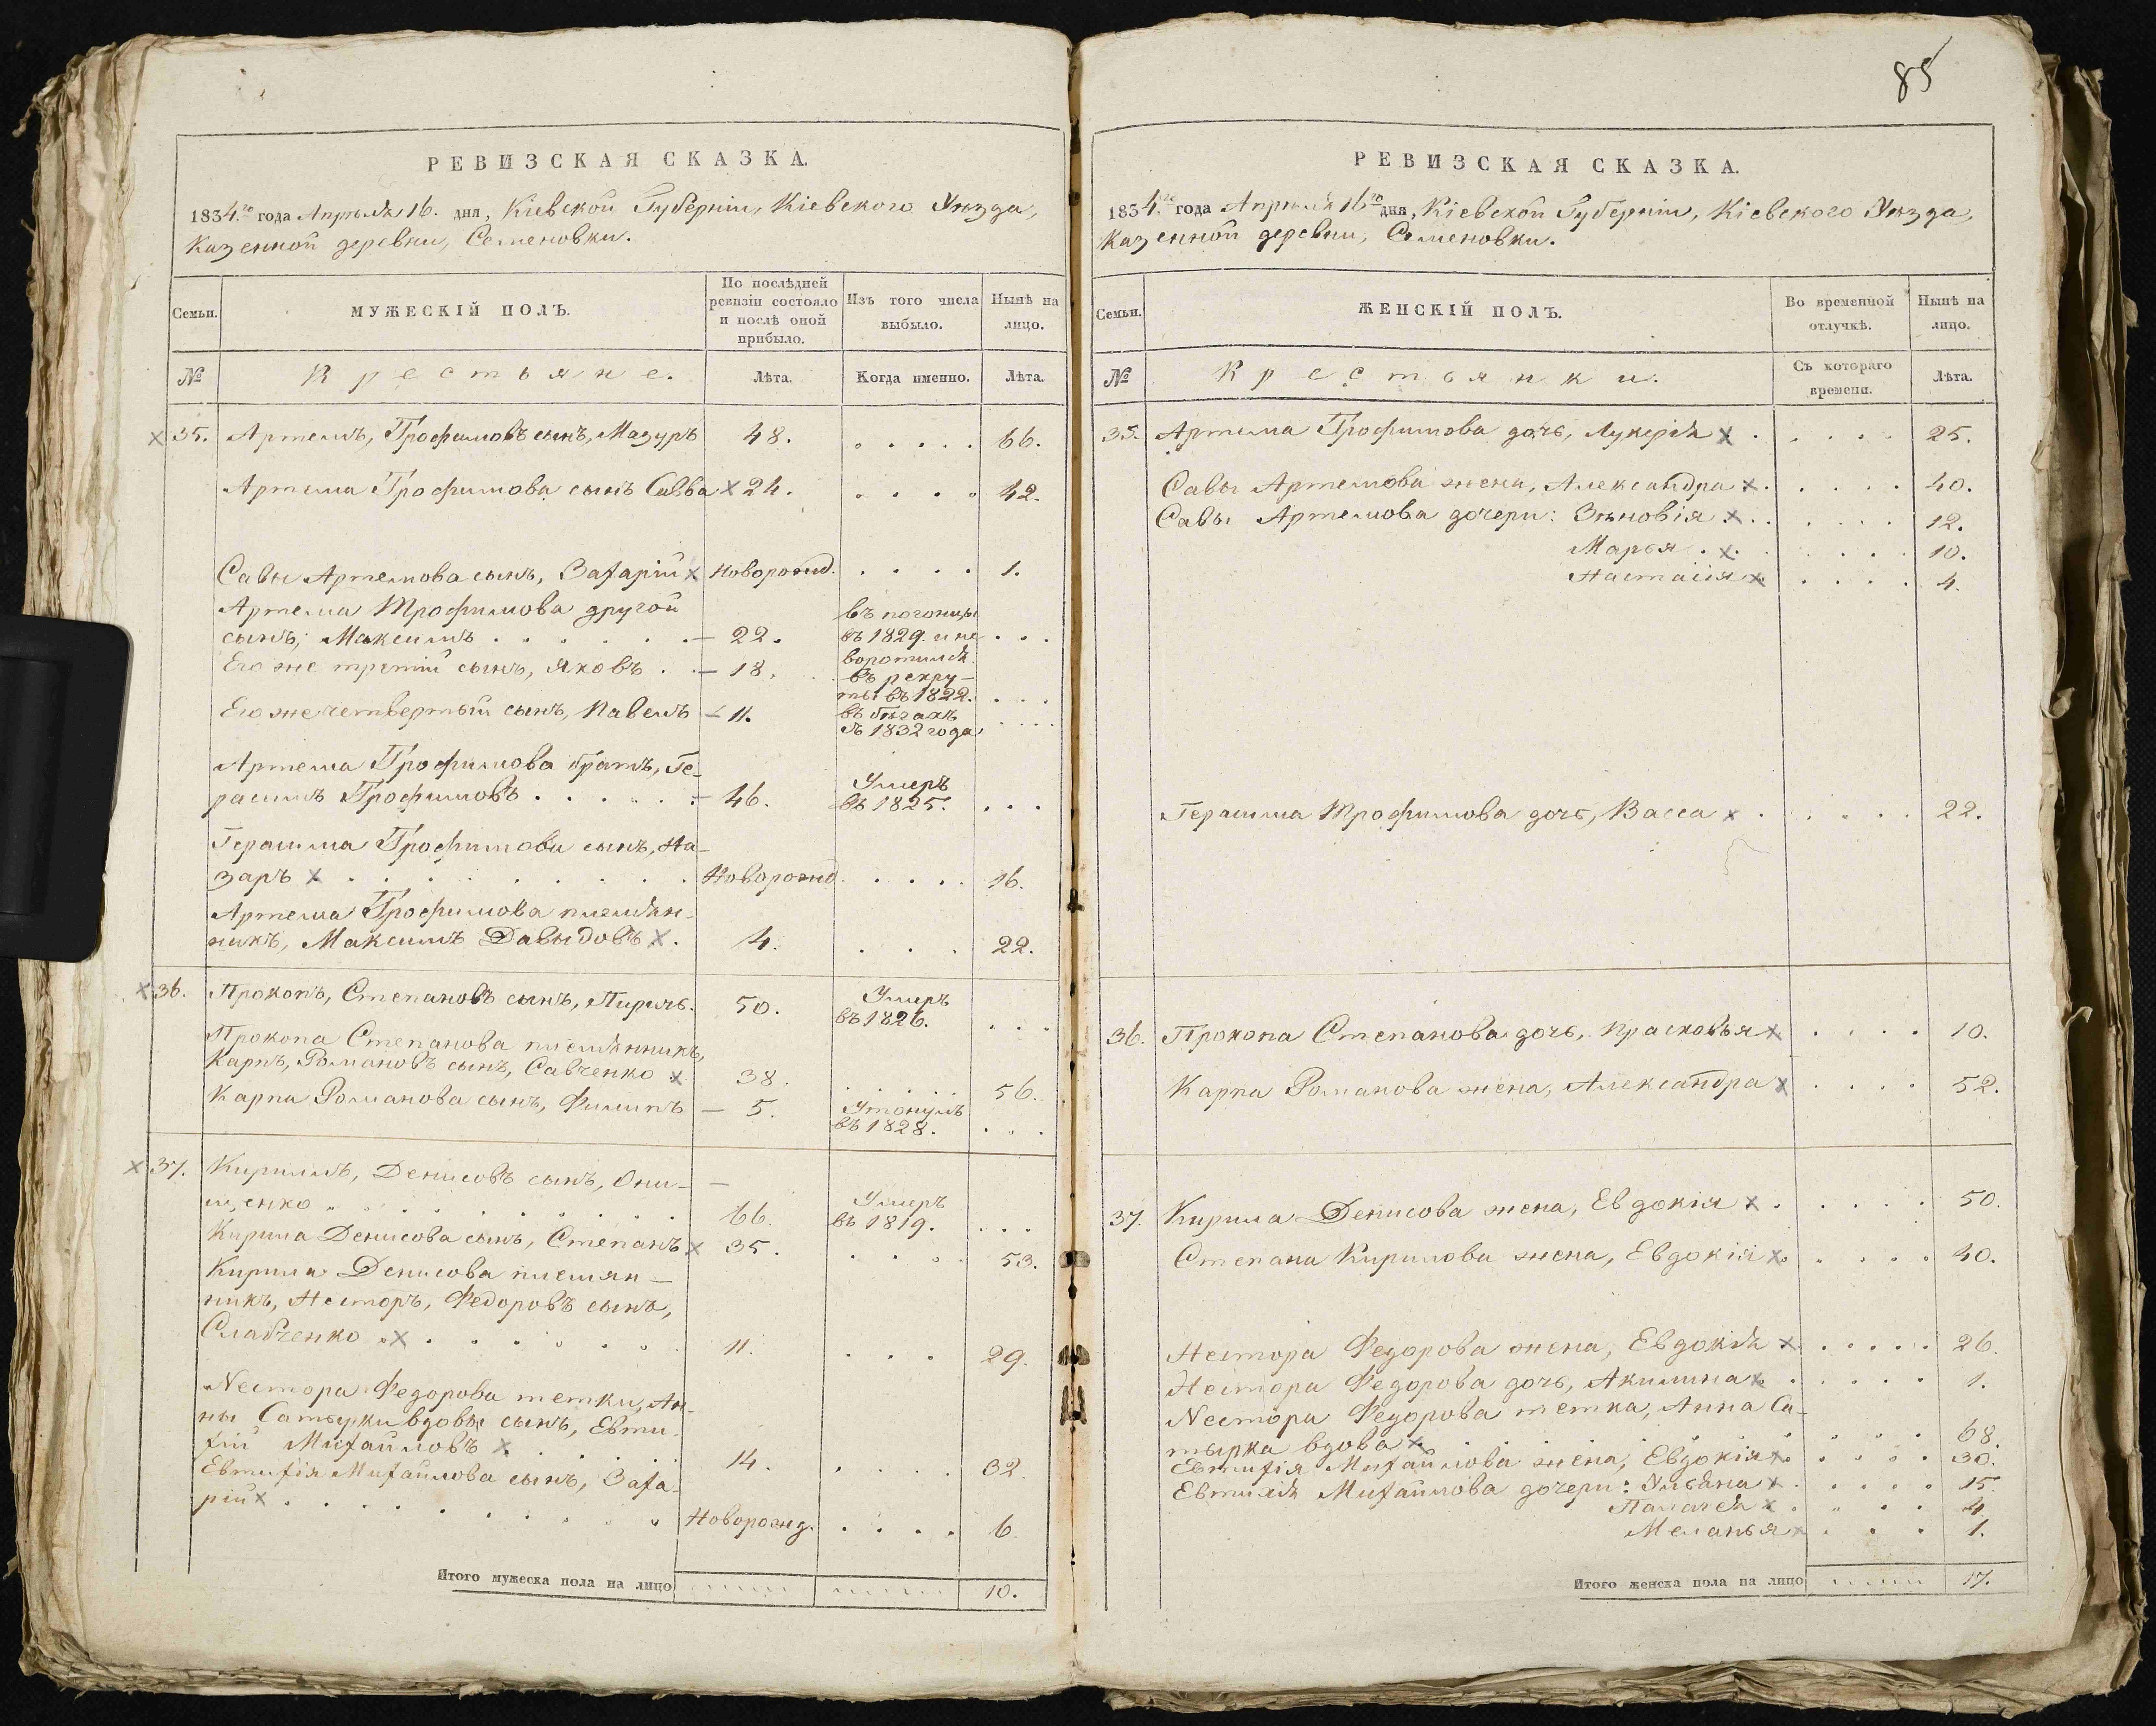 РЕВИЗСКАЯ СКАЗКА.
1834.го года Апрѣля 16. дня, Кіевской Губерніи, Кіевского Уѣзда,
Казенной деревни, Семеновки.
Семьи.
МУЖЕСКІЙ ПОЛЪ.
По послѣдней
ревизіи состояло
и послѣ оной
прибыло.
Изъ того числа
выбыло.
Нынѣ на
лицо.
№
Крестьяне.
Лѣта.
Когда именно.
Лѣта.
х 35. Артемъ, Трофимовъ сынъ, Мазуръ 48. . . . . . 66.
Артема Трофимова сынъ Савва х 24. . . . . 42.
Савы Артемова сынъ, Захарій х Новорожд. . . . . 1.
Артема Трофимова другой
сынъ, Максимъ . . . . . . — 22. въ погонцы въ 1829. и не воротился . . .
Его же третій сынъ, Яковъ . . — 18. въ рекру-
ты въ 1822. . . .
Его же четвертый сынъ, Павелъ — 11. въ бѣгахъ
съ 1832 года . . . .
Артема Трофимова братъ, Ге-
расимъ Трофимовъ . . . . . — 46. Умеръ въ 1825. . . .
Герасима Трофимова сынъ, На-
заръ х . . . . . . . . . Новорожд. . . . . 16.
Артема Трофимова племян-
никъ, Максимъ Давыдовъ х. 4. . . . 22.
х 36. Прокопъ, Степановъ сынъ, 50. Умеръ въ 1826. . . .
Прокопа Степанова племянникъ,
Карпъ, Романовъ сынъ, Савченко х 38. . . . . . 56.
Карпа Романова сынъ, Филипъ — 5. Утонулъ въ 1828. . . .
х 37. Кирилъ, Денисовъ сынъ, Они- —
щенко . . . . . . . . . 66. Умеръ въ 1819. . . .
Кирила Денисова сынъ, Степанъ х 35. . . . 53.
Кирила Денисова племян-
никъ, Несторъ, Федоровъ сынъ,
Слабченко . х . . . . . . . 11. . . . 29.
Nестора Федорова тетки, Ан-
ны Сатырки вдовы сынъ, Евти-
хій Михайловъ х . . . . 14. . . . . 32.
Евтихія Михайлова сынъ, Заха-
рій х . . . . . . . . . Новорожд. . . . . 6.
Итого мужеска пола на лицо 10.
85
РЕВИЗСКАЯ СКАЗКА.
1834.го года Апрѣля 16го дня, Кіевской Губерніи, Кіевского Уѣзда,
Казенной деревни, Семеновки.
Семьи.
ЖЕНСКІЙ ПОЛЪ.
Во временной
отлучкѣ.
Нынѣ на
лицо.
№
Крестьянки.
Съ котораго
времени.
Лѣта.
35. Артема Трофимова дочь, Лукерія х . . . . . 25.
Савы Артемова жена, Александра х . . . . . 40.
Савы Артемова дочери: Зѣновія х . . . . . . 12.
Марья . х . . . . . 10.
Настасія х . . . . 4.
Герасима Трофимова дочь, Васса х . . . . . 22.
36. Прокопа Степанова дочь, Прасковья х . . . . 10.
Карпа Романова жена, Александра х . . . . 52.
37. Кирила Денисова жена, Евдокія х . . . . . 50.
Степана Кирилова жена, Евдокія х . . . . . 40.
Нестора Федорова жена, Евдокія х . . . . . 26.
Нестора Федорова дочь, Акилина х . . . . . 1.
Nестора Федорова тетка, Анна Са-
тырка вдова х . . . . . . 68.
Евтихія Михайлова жена, Евдокія х . . . . . 30.
Евтихія Михайлова дочери: Ульяна х . . . . . 15.
Палагея х . . . . 4.
Меланья х . . . 1.
Итого женска пола на лицо 17.